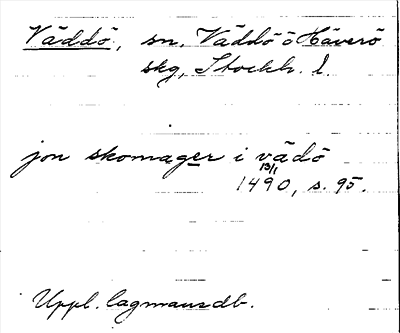 Väddö, sn, Väddö ö Häverö
skg, Stockh. l.
jon skomager i vädö
13/1
1490, s. 95.
Uppl. lagmansdb.